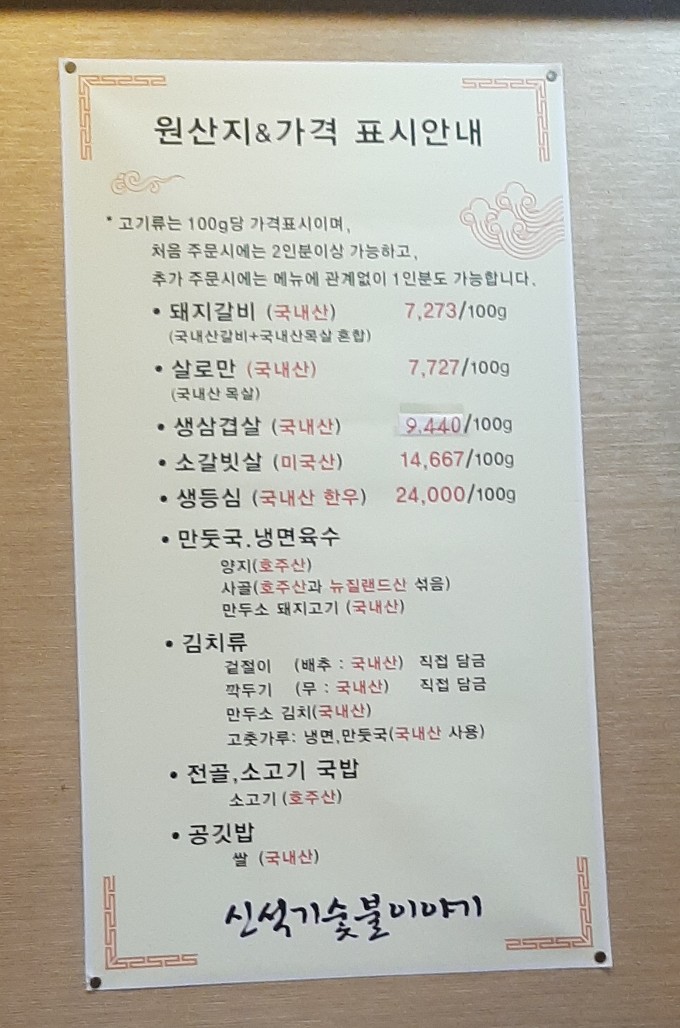 원산지&가격 표시안내
* 고기류는 100g당 가격표시이며,
처음 주문시에는 2인분이상 가능하고,
추가 주문시에는 메뉴에 관계없이 1인분도 가능합니다.
• 돼지갈비 (국내산) 7,273/100g
(국내산갈비+국내산목살 혼합)
• 살로만 (국내산) 7,727/100g
(국내산 목살)
• 생삼겹살 (국내산) 9,440/100g
• 소갈빗살 (미국산) 14,667/100g
• 생등심 (국내산 한우) 24,000/100g
• 만둣국.냉면육수
양지(호주산)
사골(호주산과 뉴질랜드산 섞음)
만두소 돼지고기 (국내산)
• 김치류
겉절이 (배추 : 국내산) 직접 담금
깍두기 (무 : 국내산) 직접 담금
만두소 김치(국내산)
고춧가루: 냉면,만둣국(국내산 사용)
• 전골,소고기 국밥
소고기 (호주산)
• 공깃밥
쌀 (국내산)
신석기숯불이야기